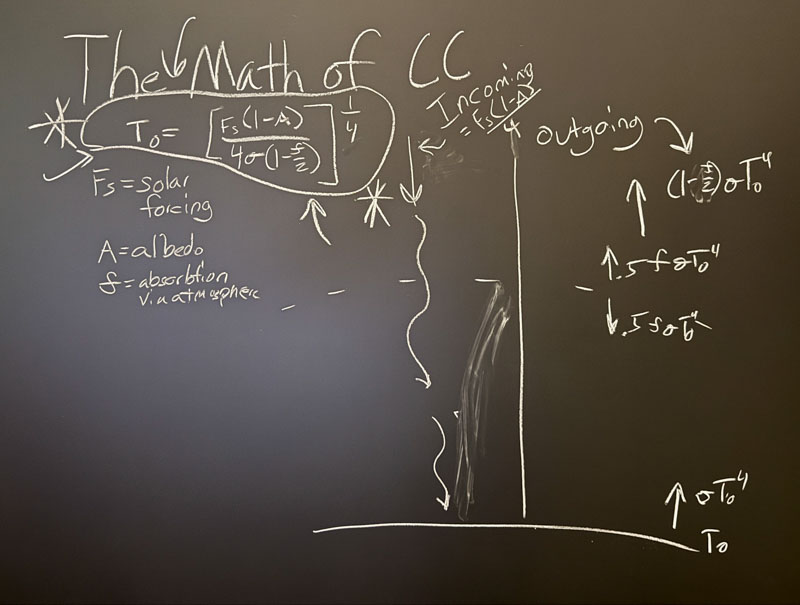 The Math of CC
T₀= [Fs(1-A)/4σ(1-f/2)]^1/4
Fs=solar
forcing
A=albedo
f=absorbtion
via atmosphere
Incoming
=Fs(1-A)/4
outgoing
(1-f/2)σT₀⁴
↑.5fσT₀⁴
↓.5fσT₀⁴
↑σT₀⁴
T₀